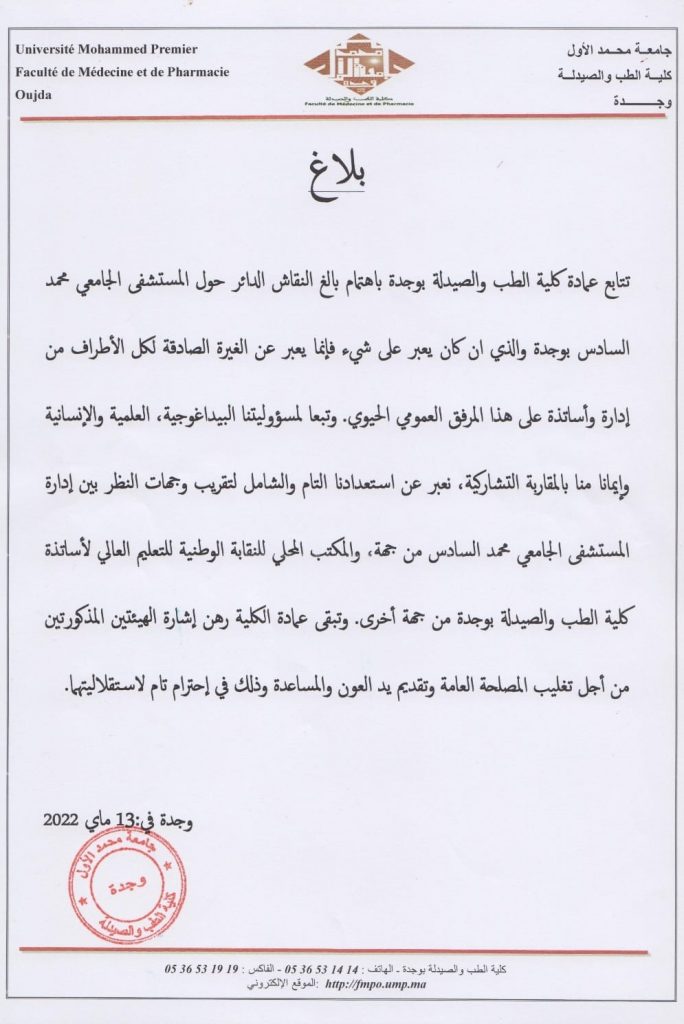 Université Mohammed Premier
Faculté de Médecine et de Pharmacie
Oujda
جامعة محمد الأول
كلية الطب والصيدلة
وجدة
كلية الطب والصيدلة
Faculté de Médecine et de Pharmacie
بلاغ
تتابع عمادة كلية الطب والصيدلة بوجدة باهتمام بالغ النقاش الدائر حول المستشفى الجامعي محمد
السادس بوجدة والذي ان كان يعبر على شيء فإنما يعبر عن الغيرة الصادقة لكل الأطراف من
إدارة وأساتذة على هذا المرفق العمومي الحيوي. وتبعا لمسؤوليتنا البيداغوجية، العلمية والإنسانية
وإيمانا منا بالمقاربة التشاركية، نعبر عن استعدادنا التام والشامل لتقريب وجهات النظر بين إدارة
المستشفى الجامعي محمد السادس من جهة، والمكتب المحلي للنقابة الوطنية للتعليم العالي لأساتذة
كلية الطب والصيدلة بوجدة من جهة أخرى. وتبقى عمادة الكلية رهن إشارة الهيئتين المذكورتين
من أجل تغليب المصلحة العامة وتقديم يد العون والمساعدة وذلك في إحترام تام لاستقلاليتهما.
وجدة في:13 ماي 2022
جامعة محمد الأول
وجدة
كلية الطب والصيدلة
كلية الطب والصيدلة بوجدة - الهاتف : 05 36 53 14 14 - الفاكس : 05 36 53 19 19
الموقع الإلكتروني: http://fmpo.ump.ma